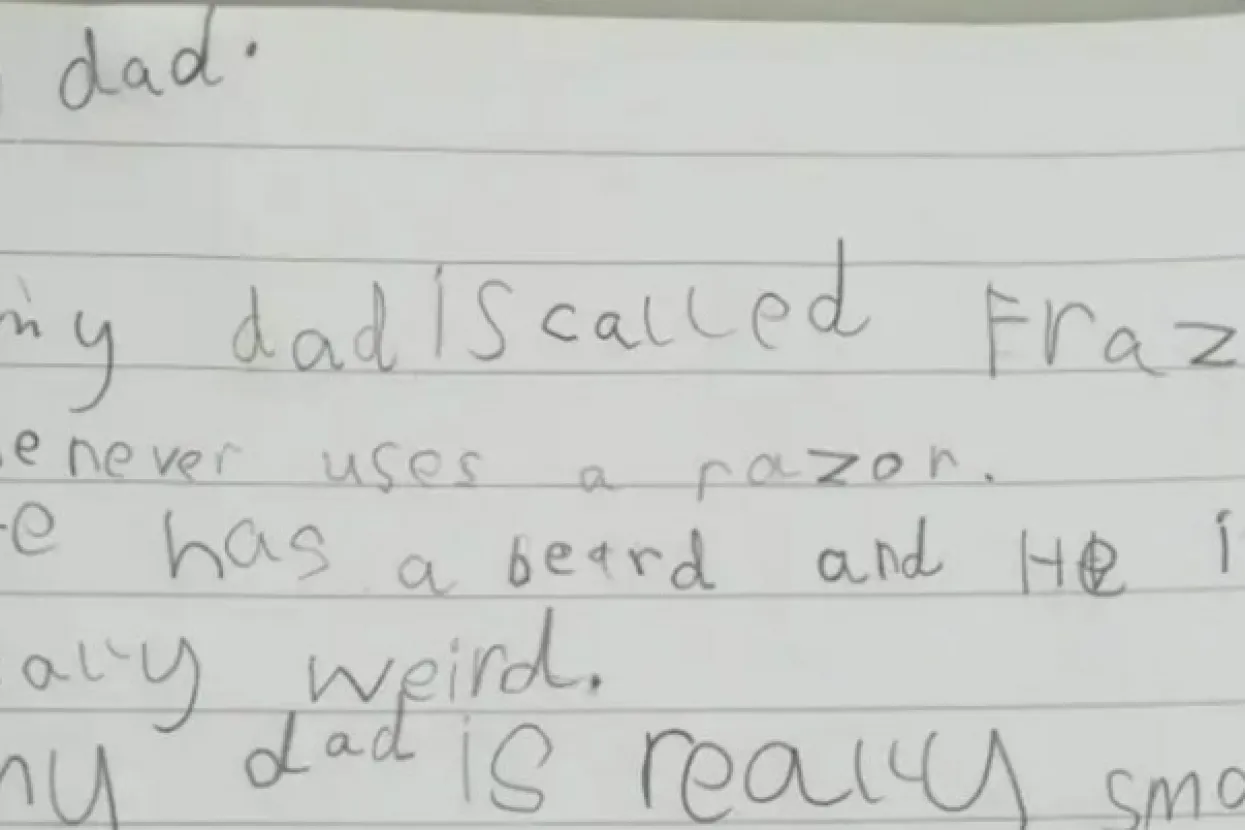 dad.
my dad is called Fraz
e never uses a razor.
e has a beard and He i
ally weird.
my dad is really sma